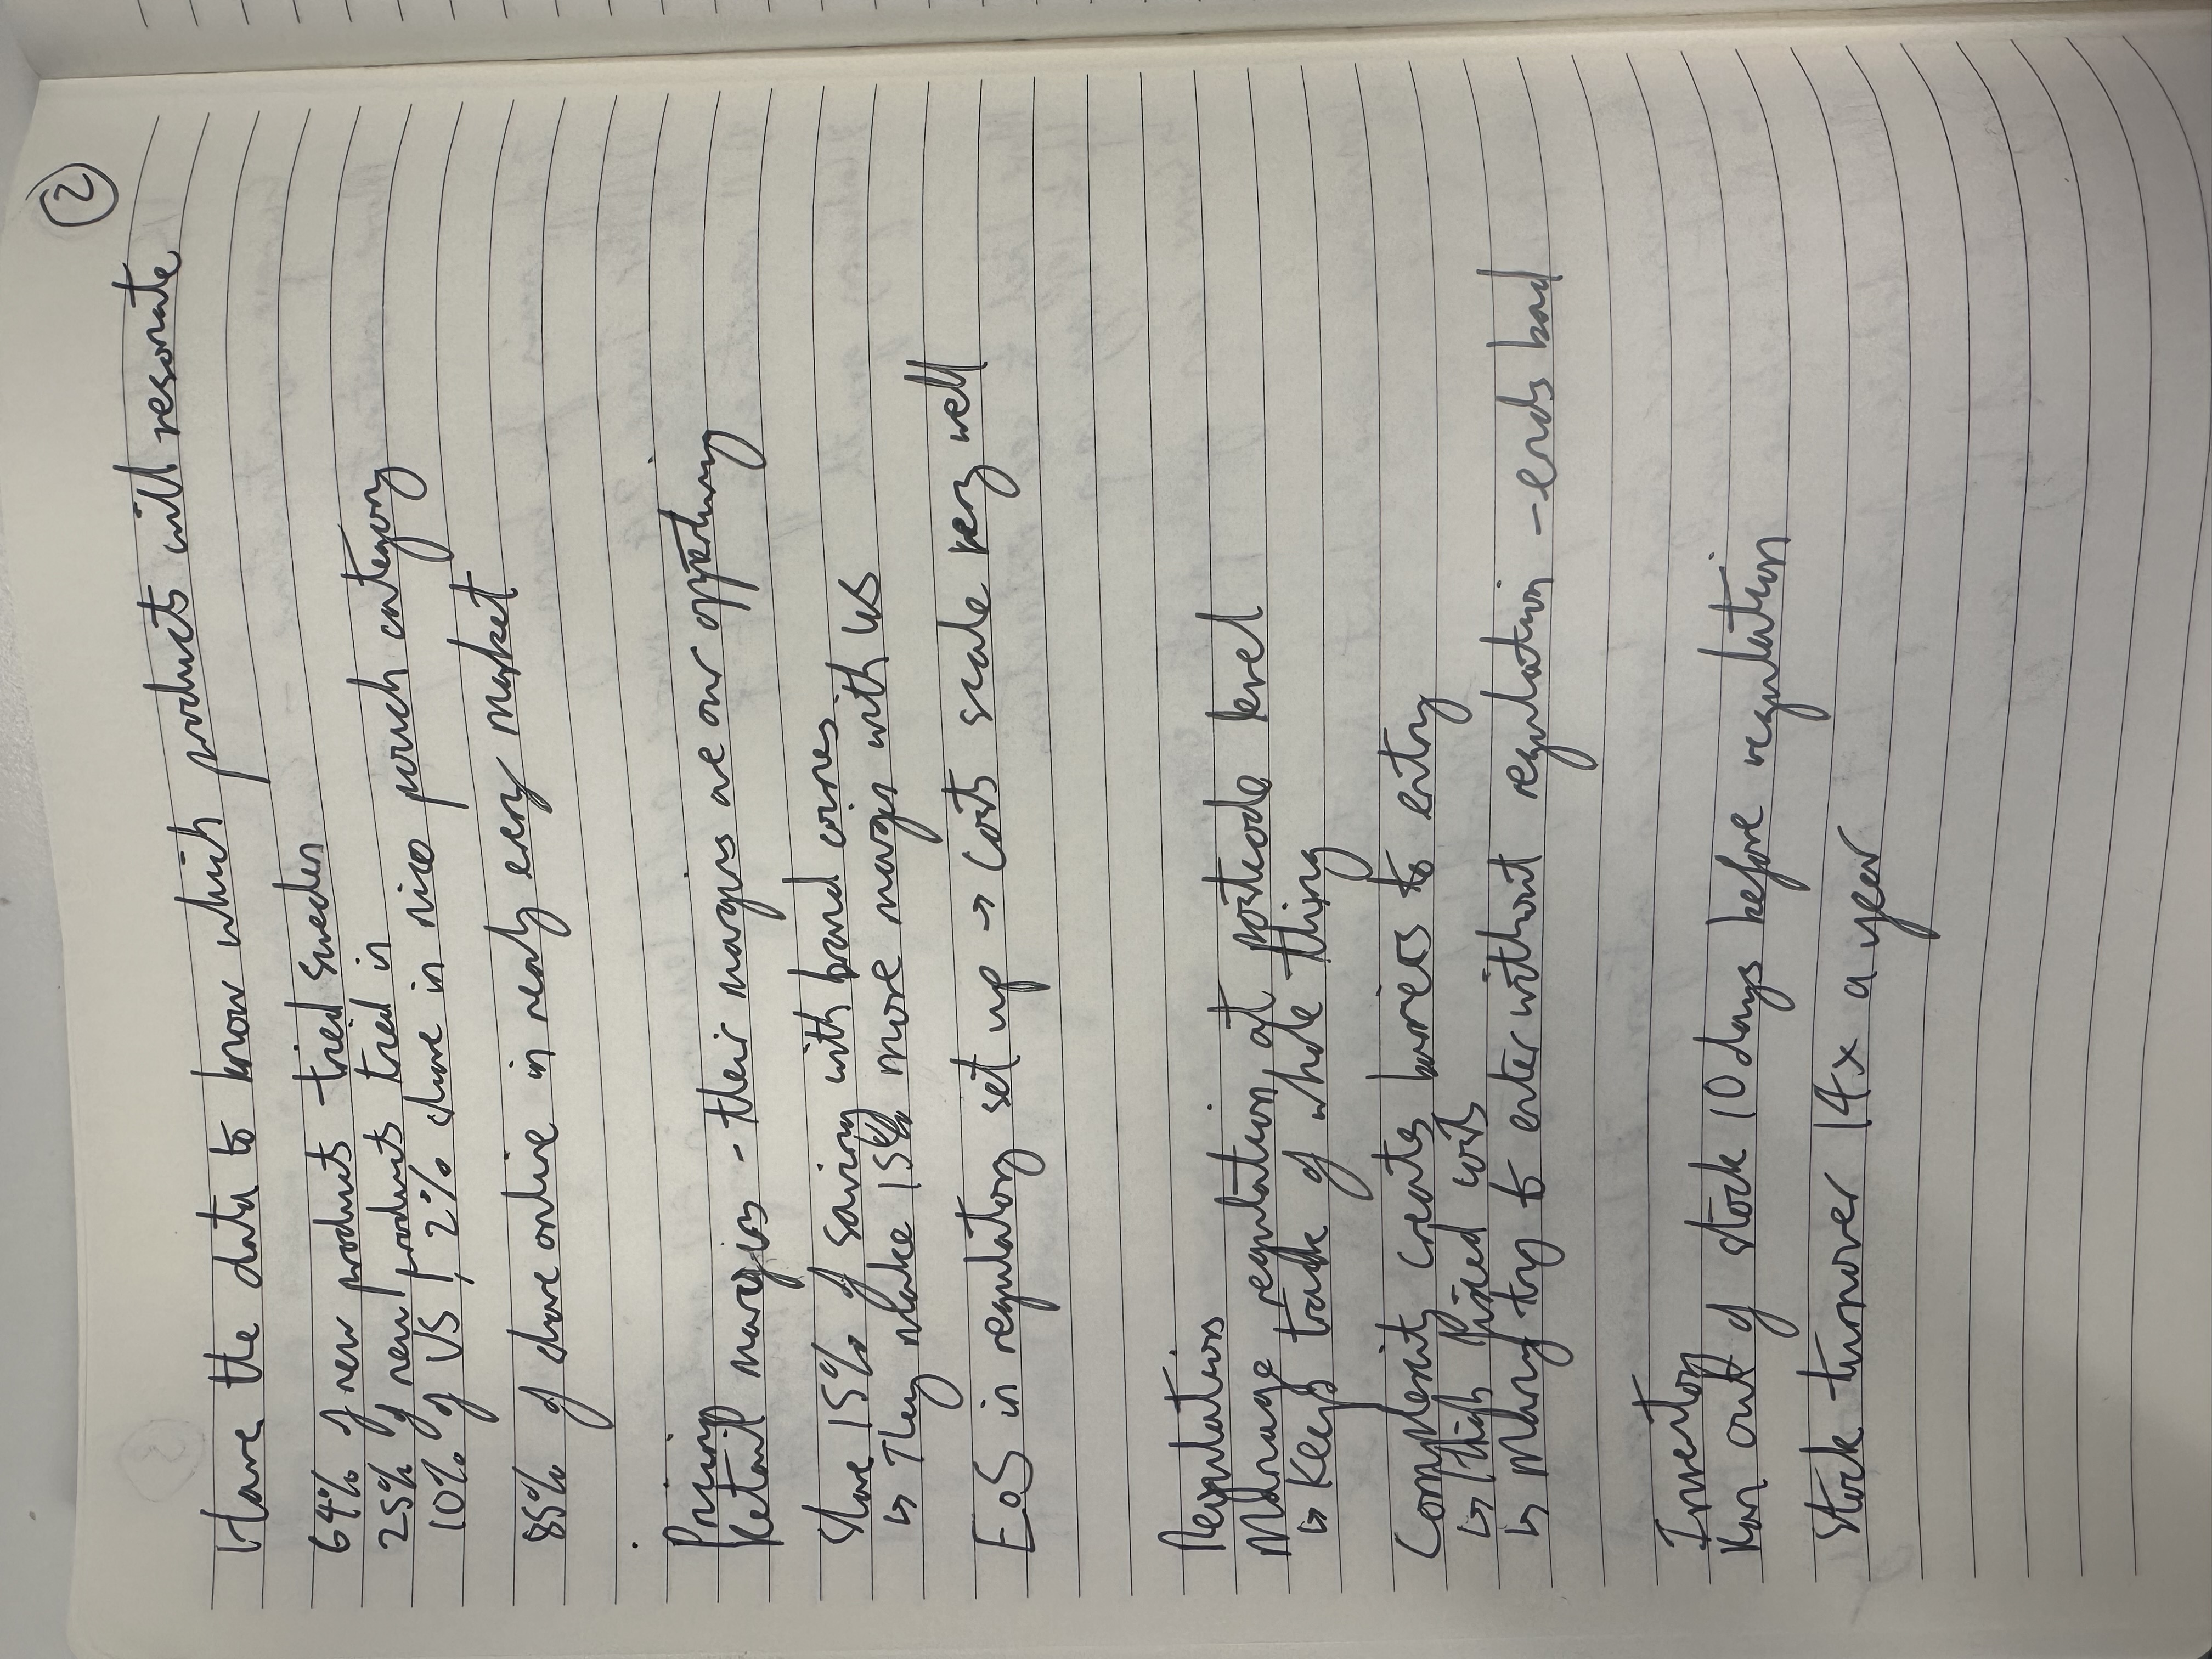 2
Have the data to know which products will resonate
64% of new products tried Sweden
25% of new products tried in
10% of US, 2% share in nico pouch category
85% of share online in nearly every market
Pricing
Retail margins - their margins are our opportunity
Share 15% of saving with brand owners.
↳ They make 15% more margin with us
EoS in regulatory set up → Costs scale very well
Regulations
Manage regulation at postcode level
↳ Keeps track of whole thing
Complexity creates barriers to entry
↳ High fixed costs
↳ Many try to enter without regulation - ends bad
Inventory
Ran out of stock 10 days before regulation
Stock turnover 14x a year